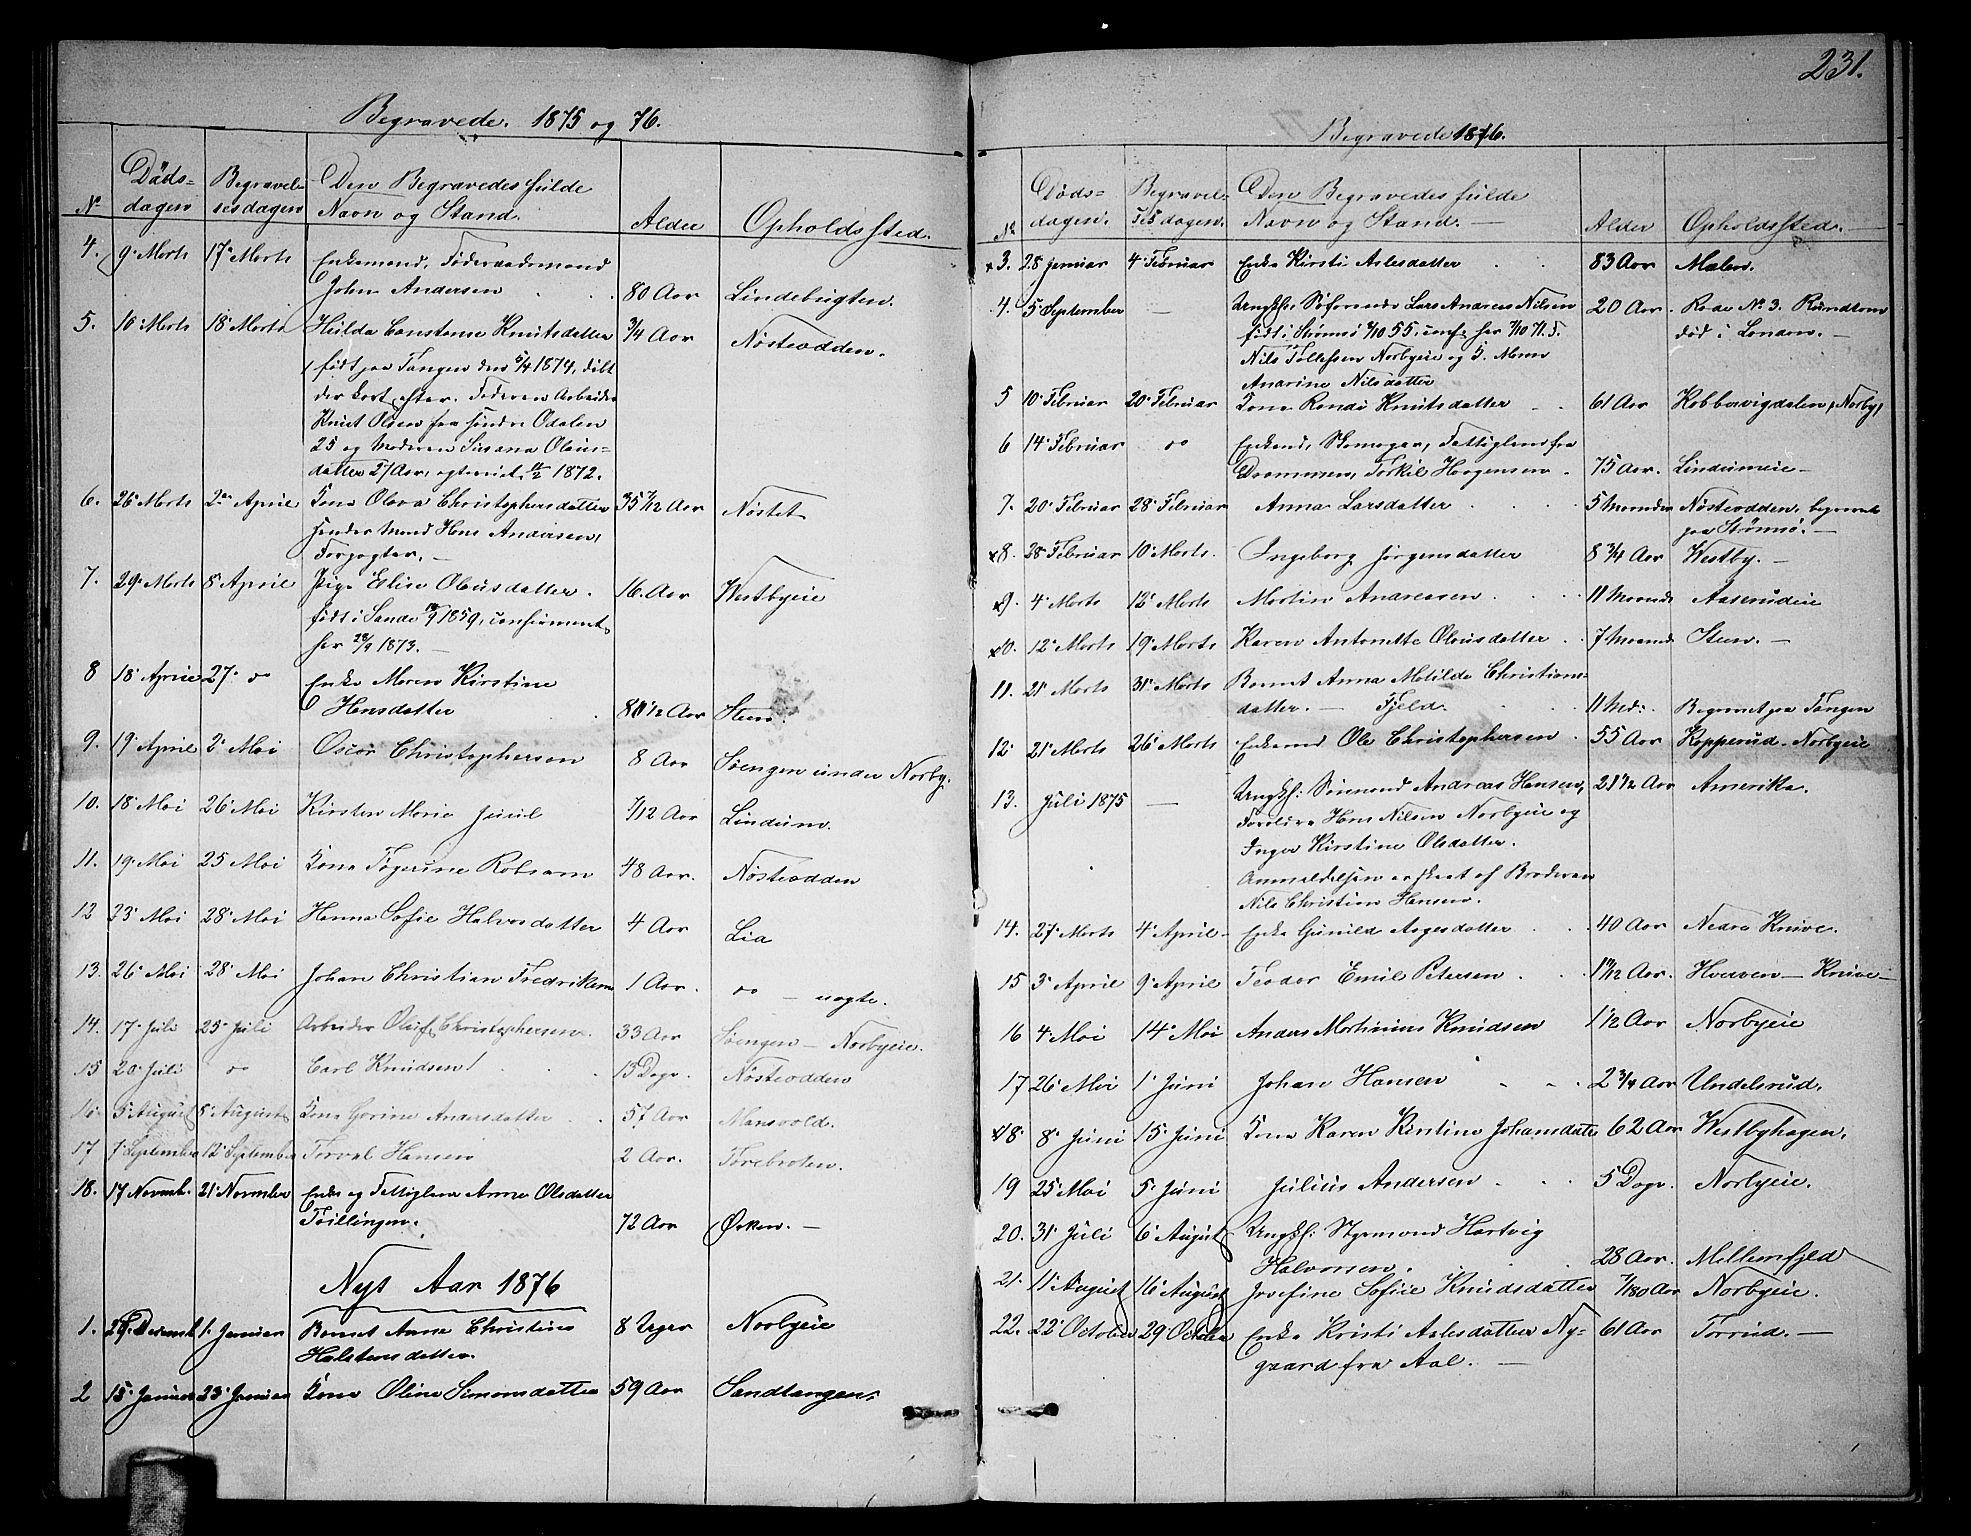 231.
Begravede. 1875 og 76.
No
Døds-
dagen
Begravel-
sesdagen
Den Begravedes fulde
Navn og Stand.
Alder
Opholdssted.
4. 9. Marts 17. Marts Enkemand, Føderaadsmand
John Andersen 80 Aar Lindebugten.
5. 16 Marts 18 Marts Hilda Constance Knutsdatter 3/4 Aar Nøsteodden.
født paa Tangen den 5/4 1874, døbt
der kort efter. Faderen Arbeider
Knut Olsen fra søndre Odalen
25 og Moderen Susana Olaus-
datter 27 Aar, egteviet 1872.
6. 26 Marts 2den April Kona Olava Christophersdatter 35 7/12 Aar Nøstet
hendes Mand Hans Andersen,
Forpagter.
7. 29. Marts 8 April Pige Elise Olausdatter. 16. Aar Westbyeie
født i Sande 1859, confirmeret
her 28/9 1873.
8 18 April 27. do Enke Maren Kirstine
Hansdatter 1/2 Aar Steen.
9. 19 April 2. Mai Oscar Christophersen 8 Aar Søengen under Norby.
10. 18 Mai 26 Mai Kirsten Marie Juul 7/12 Aar Lindum.
11. 19. Mai 25 Mai Kona Togerine Robsam 48 Aar. Nøsteodden
12 23 Mai 28 Mai Hanna Sofie Halvorsdatter 4 Aar Lia
13. 26 Mai 28 Mai Johan Christian Fredriksen 1 Aar. do — uægte.
14. 17 Juli 25 Juli Arbeider Oluf Christophersen. 33 Aar Søengen — Norbyeie.
15 20 Juli do Carl Knudsen 13 Dage. Nøsteodden
16. 5 August 8 August Kona Gorine Andersdatter 57 Aar Mansvold.
17 7 September 12 September Torval Hansen 2 Aar. Torebroten.
18. 17 Novemb. 21 November Enke og Fattiglem Anne Olsdatter
Tvillingen. 72 Aar Ørken.
Nyt Aar 1876
1. Decemb 1. Januar Barnet Anne Christine 8 Uger Norbyeie
Halstensdatter.
2 15 Januar 23 Januar Kona Oline Simonsdatter 59 Aar Sandtangen.
Begravede 1876.
No
Døds-
dagen.
Begravel-
ses dagen.
Den Begravedes fulde
Navn og Stand.
Alder
Opholdssted.
x 3. 28 Januar 4 Februar Enke Kirsti Aslesdatter 83 Aar Malen.
4. 5 September — Ungkf. Søfarende Lars Andreas Nilsen 20 Aar. Rode No 3. Rundtom
født i Strømsø 2/10 55, conf. her 1/10 71. F. død i London.
Nils Tollefsen Norbyeie og K. Maren
Anarine Nilsdatter
5 10. Februar 20 Februar Kona Randi Knutsdatter 61 Aar Kobbervigdalen, Norby,
6 14 Februar do Enkemd, Skomager, Fattiglem fra
Drammen, Torkil Horgensen 75 Aar. Lindumeie
7. 20 Februar 28 Februar Anna Larsdatter 5 Maaneder Nøsteodden, begravet
paa Strømsø.
x8. 28 Februar 10. Marts. Ingeborg Jørgensdatter 8 3/4 Aar Westby.
x9. 4 Marts 12 Marts Martin Andreasen 11 Maaneder Aaserudeie
x10. 12 Marts 19. Marts Karen Antonette Olausdatter 7 Maaned. Steen.
11. 21 Marts 31 Marts Barnet Anna Matilde Christians-
datter. — Fjeld. 11 Md: Begravet paa Tangen
12. 21 Marts 26 Marts Enkemd Ole Christophersen 55 Aar Kopperud. Norbyeie
13. Juli 1875 — Ungkf: Sømand Andreas Hansen, 21 1/2 Aar Amerika.
Forældre Hans Nilsen Norbyeie og
Inger Kirstine Olsdatter.
Anmeldelsen er skeet af Broderen
Nils Christian Hansen.
14. 27. Marts 4 April Enke Gunild Aagesdatter 40 Aar Nedre Knive.
15 3 April 9 April Teodor Emil Petersen Aar. Hverven — Knive
16 4. Mai 14 Mai Anders Martinius Knudsen 1 1/2 Aar Norbyeie
17 26 Mai 1 Juni Johan Hansen 2 3/4 Aar Undelsrud.
x18. 8. Juni 15 Juni Kona Karen Kirstine Johansdatter 62 Aar Westbyhagen.
19 25 Mai 5 Juni Julius Andersen 5 Dage. Norbyeie.
20. 31 Juli 6 August Ungkf: Styrmand Hartvig
Halvorsen. 28 Aar. Mellemfjeld
21. 11 August 16 August Josefine Sofie Knudsdatter Aar Norbyeie.
22. 22 October 29 October Enke Kristi Aslesdatter Ny- 61 Aar Torrud.
gaard fra Aal.